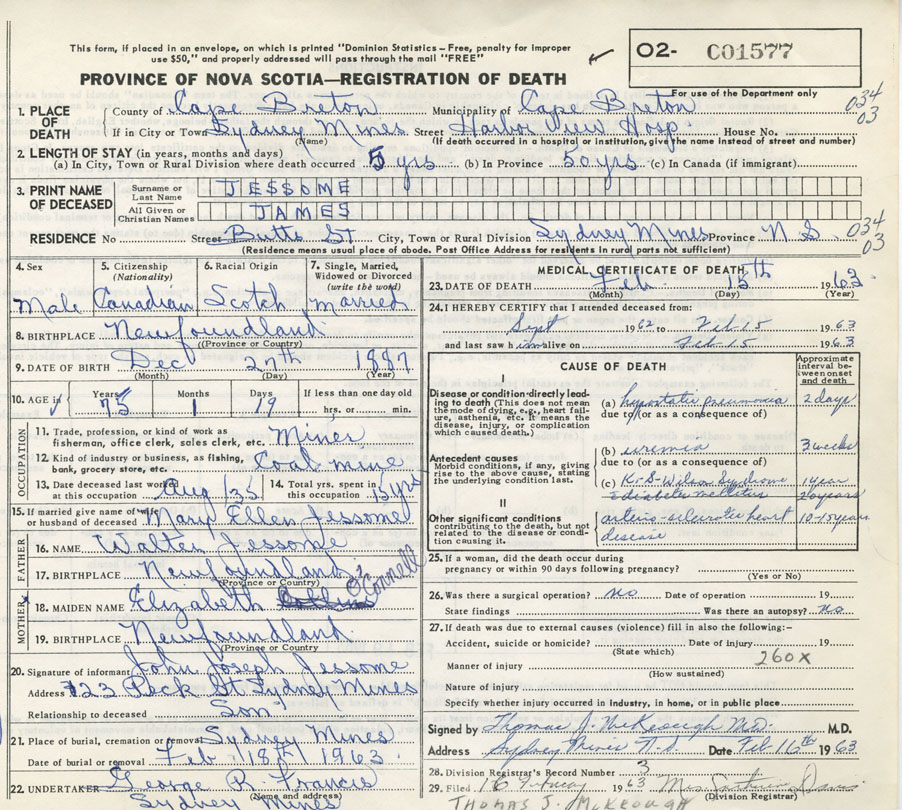 This form, if placed in an envelope, on which is printed "Dominion Statistics – Free, penalty for improper
use $50," and properly addressed will pass through the mail "FREE"
O2- C01577
PROVINCE OF NOVA SCOTIA—REGISTRATION OF DEATH
For use of the Department only
034
03
1. PLACE OF DEATH County of Cape Breton Municipality of Cape Breton
If in City or Town Sydney Mines Street Harbor View Hosp. House No.
(Name) (If death occurred in a hospital or institution, give the name instead of street and number)
2. LENGTH OF STAY (in years, months and days)
(a) In City, Town or Rural Division where death occurred 5 yrs (b) In Province 50 yrs (c) In Canada (if immigrant)
3. PRINT NAME OF DECEASED Surname or Last Name JESSOME
All Given or Christian Names JAMES
RESIDENCE No Street Butts St City, Town or Rural Division Sydney Mines Province N S
034
03
(Residence means usual place of abode. Post Office Address for residents in rural parts not sufficient)
4. Sex 5. Citizenship (Nationality) 6. Racial Origin 7. Single, Married, Widowed or Divorced (write the word)
Male Canadian Scotch Married
8. BIRTHPLACE Newfoundland
(Province or Country)
9. DATE OF BIRTH Dec 27th 1887
(Month) (Day) (Year)
10. AGE in Years Months Days If less than one day old
75 1 19 hrs. or min.
OCCUPATION
11. Trade, profession, or kind of work as
fisherman, office clerk, sales clerk, etc. Miner
12. Kind of industry or business, as fishing,
bank, grocery store, etc. Coal mine
13. Date deceased last worked at this occupation Aug 135 14. Total yrs. spent in this occupation 15 yrs
15. If married give name of wife or husband of deceased Mary Ellen Jessome
FATHER
16. NAME Walter Jessome
17. BIRTHPLACE Newfoundland
(Province or Country)
MOTHER
18. MAIDEN NAME Elizabeth Collins O'Connell
19. BIRTHPLACE Newfoundland
(Province or Country)
20. Signature of informant John Joseph Jessome
Address 123 Peck St Sydney Mines
Relationship to deceased Son
21. Place of burial, cremation or removal Sydney Mines
Date of burial or removal Feb 18th 1963
22. UNDERTAKER George R. Francis
(Name and address)
Sydney Mines
MEDICAL CERTIFICATE OF DEATH
23. DATE OF DEATH Feb. 15th 1963
(Month) (Day) (Year)
24. I HEREBY CERTIFY that I attended deceased from:
Sept 1962 to Feb 15 1963
and last saw him alive on Feb 15 1963
CAUSE OF DEATH
Approximate interval between onset and death
I
Disease or condition directly leading to death (This does not mean the mode of dying, e.g., heart failure, asthenia, etc. It means the disease, injury, or complication which caused death.)
(a) hypostatic pneumonia 2 days
due to (or as a consequence of)
Antecedent causes
Morbid conditions, if any, giving rise to the above cause, stating the underlying condition last.
(b) uremia 3 weeks
due to (or as a consequence of)
(c) K-S-Wilson Syndrome 1 year
diabetes mellitus 20 years
II
Other significant conditions contributing to the death, but not related to the disease or condition causing it.
arterio-sclerotic heart disease 10-15 years
25. If a woman, did the death occur during
pregnancy or within 90 days following pregnancy?
(Yes or No)
26. Was there a surgical operation? no Date of operation 19
State findings Was there an autopsy? no
27. If death was due to external causes (violence) fill in also the following:–
Accident, suicide or homicide? Date of injury 19
(State which)
260X
Manner of injury
(How sustained)
Nature of injury
Specify whether injury occurred in industry, in home, or in public place
Signed by Thomas J. McKeough M.D. M.D.
Address Sydney Mines N.S. Date Feb 16th 1963
28. Division Registrar's Record Number 3
29. Filed 16 February 1963
(Division Registrar)
THOMAS J. McKEOUGH